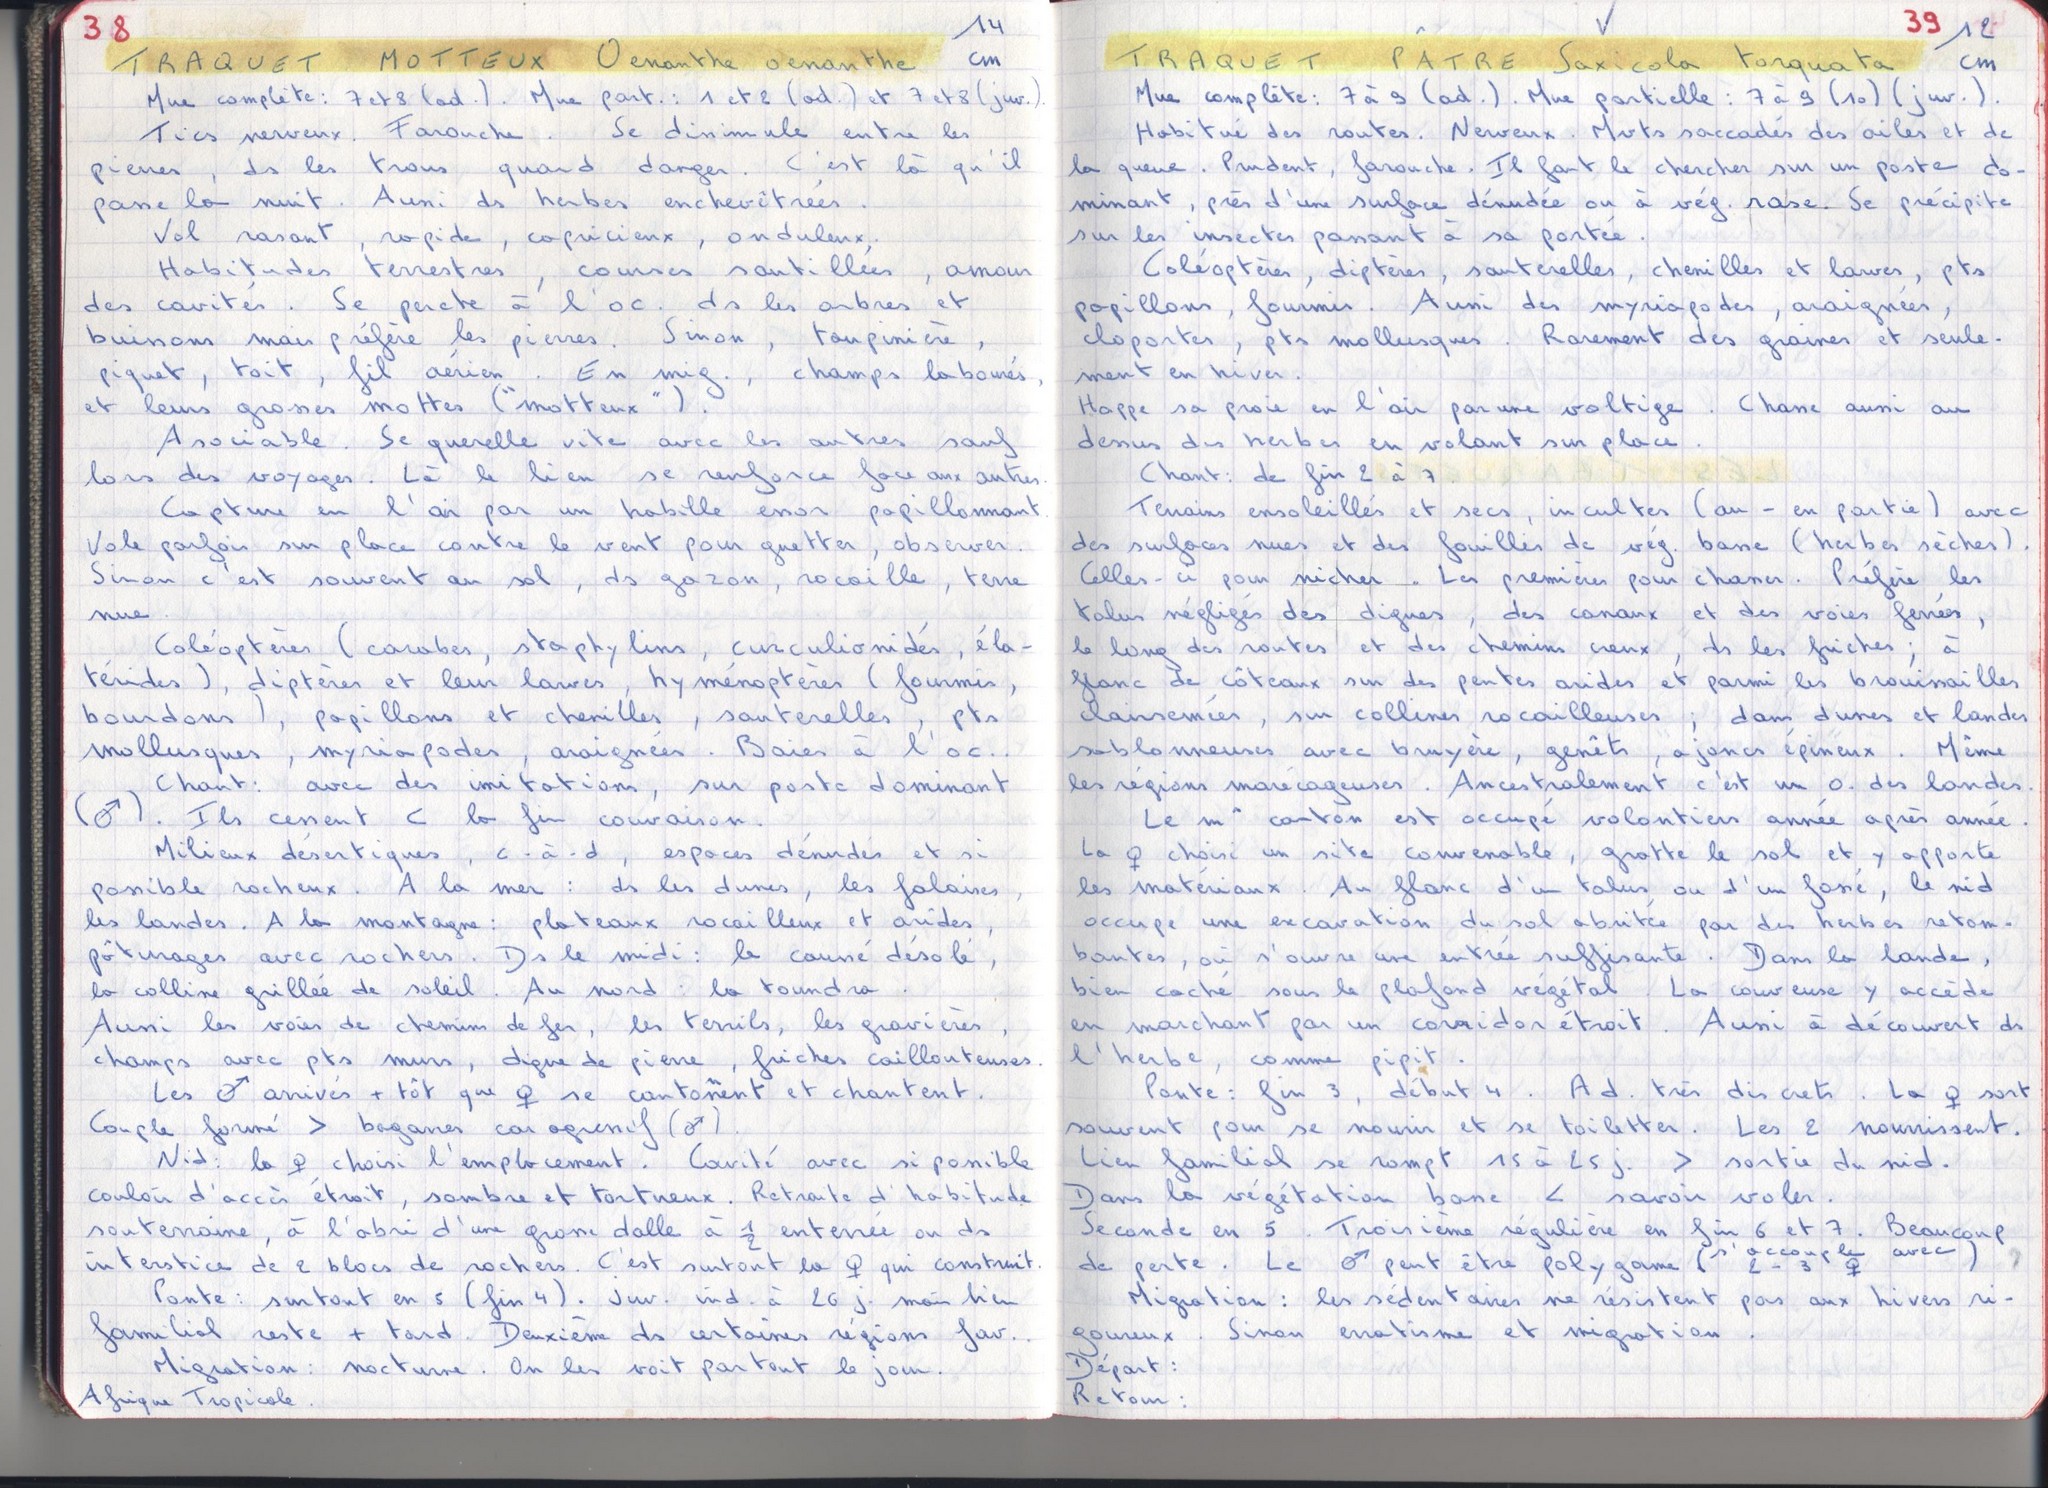 38
14 cm
TRAQUET MOTTEUX Oenanthe oenanthe
Mue complète: 7 et 8 (ad.). Mue part.: 1 et 2 (ad.) et 7 et 8 (juv.).
Tics nerveux. Farouche. Se dissimule entre les
pierres, ds les trous quand danger. C'est là qu'il
passe la nuit. Aussi ds herbes enchevêtrées.
Vol rasant, rapide, capricieux, onduleux.
Habitudes terrestres, courses sautillées, amour
des cavités. Se perche à l'oc. ds les arbres et
buissons mais préfère les pierres. Sinon, taupinière,
piquet, toit, fil aérien. En mig., champs labourés,
et leurs grosses mottes ("motteux").
Asociable. Se querelle vite avec les autres sauf
lors des voyages. Là le lien se renforce face aux autres.
Capture en l'air par un habille essor papillonnant.
Vole parfois sur place contre le vent pour guetter, observer.
Sinon c'est souvent au sol, ds gazon, rocaille, terre
nue.
Coléoptères (carabes, staphylins, curculionidés, éla-
téridés), diptères et leur larves, hyménoptères (fourmis,
bourdons), papillons et chenilles, sauterelles, pts
mollusques, myriapodes, araignées. Baies à l'oc..
Chant: avec des imitations, sur poste dominant
(♂). Ils cessent < la fin couvaison.
Milieux désertiques, c-à-d, espaces dénudés et si
possible rocheux. A la mer: ds les dunes, les falaises,
les landes. A la montagne: plateaux rocailleux et arides,
pâturages avec rochers. Ds le midi: le causse désolé,
la colline grillée de soleil. Au nord: la toundra.
Aussi les voies de chemins de fer, les terrils, les gravières,
champs avec pts murs, digue de pierre, friches caillouteuses.
Les ♂ arrivés + tôt que ♀ se cantonnent et chantent.
Couple formé > bagarres car agressif (♂).
Nid: la ♀ choisi l'emplacement. Cavité avec si possible
couloir d'accès étroit, sombre et tortueux. Retraite d'habitude
souterraine, à l'abri d'une grosse dalle à ½ enterrée ou ds
interstice de 2 blocs de rochers. C'est surtout la ♀ qui construit.
Ponte: surtout en 5 (fin 4). Juv. ind. à 26 j. mais lien
familial reste + tard. Deuxième ds certaines régions fav..
Migration: nocturne. On les voit partout le jour.
Afrique Tropicale.
39
12 cm
TRAQUET PÂTRE Saxicola torquata
Mue complète: 7 à 9 (ad.). Mue partielle: 7 à 9 (10) (juv.).
Habitué des routes. Nerveux. Mvts saccadés des ailes et de
la queue. Prudent, farouche. Il faut le chercher sur un poste do-
minant, près d'une surface dénudée ou à vég. rase. Se précipite
sur les insectes passant à sa portée.
Coléoptères, diptères, sauterelles, chenilles et larves, pts
papillons, fourmis. Aussi des myriapodes, araignées,
cloportes, pts mollusques. Rarement des graines et seule-
ment en hiver.
Happe sa proie en l'air par une voltige. Chasse aussi au
dessus des herbes en volant sur place.
Chant: de fin 2 à 7.
Terrains ensoleillés et secs, incultes (au - en partie) avec
des surfaces nues et des fouillis de vég. basse (herbes sèches).
Celles-ci pour nicher. Les premières pour chasser. Préfère les
talus négligés des digues, des canaux et des voies ferrées,
le long des routes et des chemins creux, ds les friches; à
flanc de côteaux sur des pentes arides et parmi les broussailles
clairsemées, sur collines rocailleuses; dans dunes et landes
sablonneuses avec bruyère, genêts, ajoncs épineux. Même
les régions marécageuses. Ancestralement c'est un o. des landes.
Le m^ canton est occupé volontiers année après année.
La ♀ choisi un site convenable, gratte le sol et y apporte
les matériaux. Au flanc d'un talus ou d'un fossé, le nid
occupe une excavation du sol abritée par des herbes retom-
bantes, où s'ouvre une entrée suffisante. Dans la lande,
bien caché sous le plafond végétal. La couveuse y accède
en marchant par un corridor étroit. Aussi à découvert ds
l'herbe, comme pipit.
Ponte: fin 3, début 4. Ad. très discrets. La ♀ sort
souvent pour se nourrir et se toiletter. Les 2 nourrissent.
Lien familial se rompt 15 à 25 j. > sortie du nid.
Dans la végétation basse < savoir voler.
Seconde en 5. Troisième régulière en fin 6 et 7. Beaucoup
de perte. Le ♂ peut être polygame (s'accouple avec 2-3 ♀) ?
Migration: les sédentaires ne résistent pas aux hivers ri-
goureux. Sinon erratisme et migration.
Départ:
Retour: